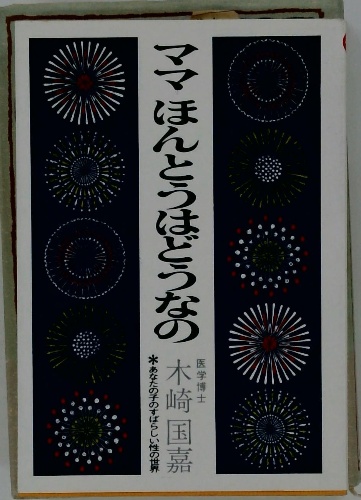 ママ ほんとうはどうなの
医学博士
木崎国嘉
*あなたの子のすばらしい性の世界